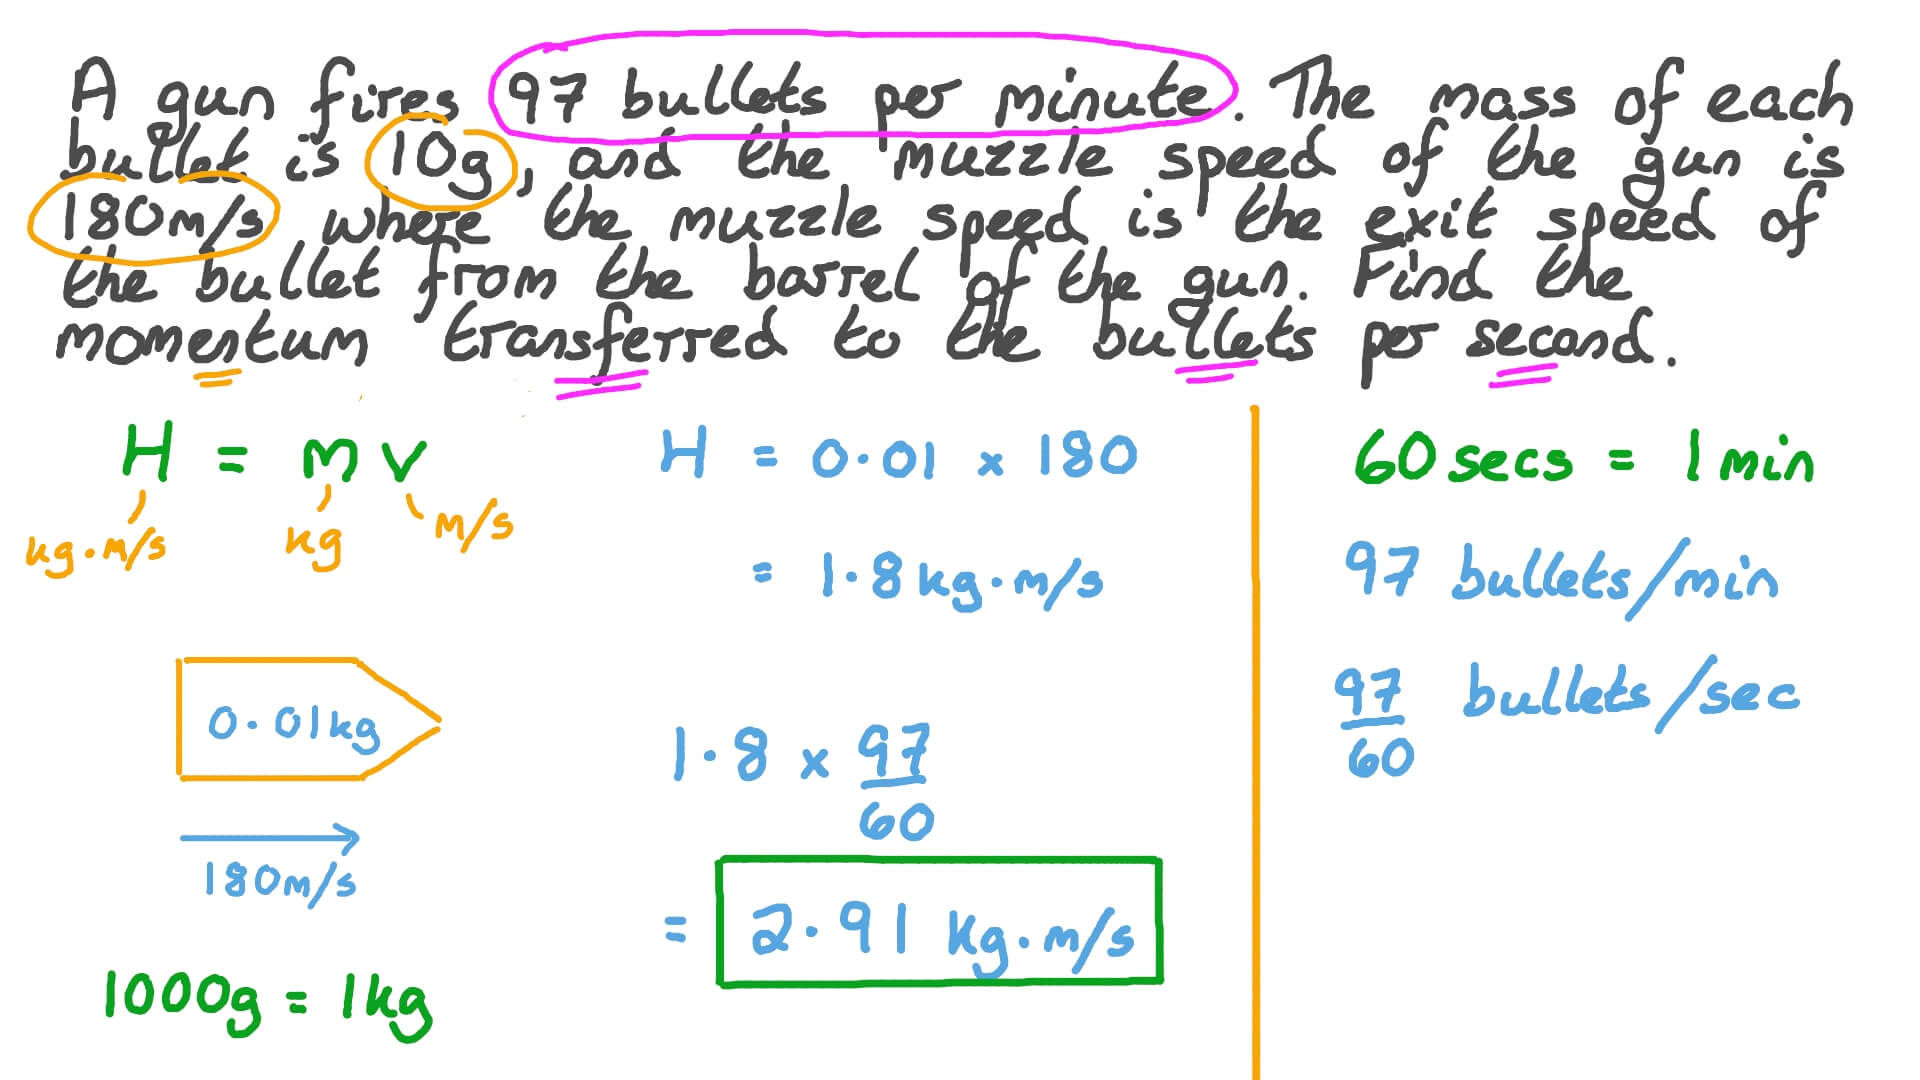 A gun fires 97 bullets per minute. The mass of each
bullet is 10g, and the muzzle speed of the gun is
180m/s where the muzzle speed is the exit speed of
the bullet from the barrel of the gun. Find the
momentum transferred to the bullets per second.
H = mv
kg·m/s
kg
m/s
0.01kg
180m/s
1000g = 1kg
H = 0.01 x 180
= 1.8kg·m/s
1.8 x 97/60
= 2.91 kg·m/s
60secs = 1min
97 bullets/min
97/60 bullets/sec